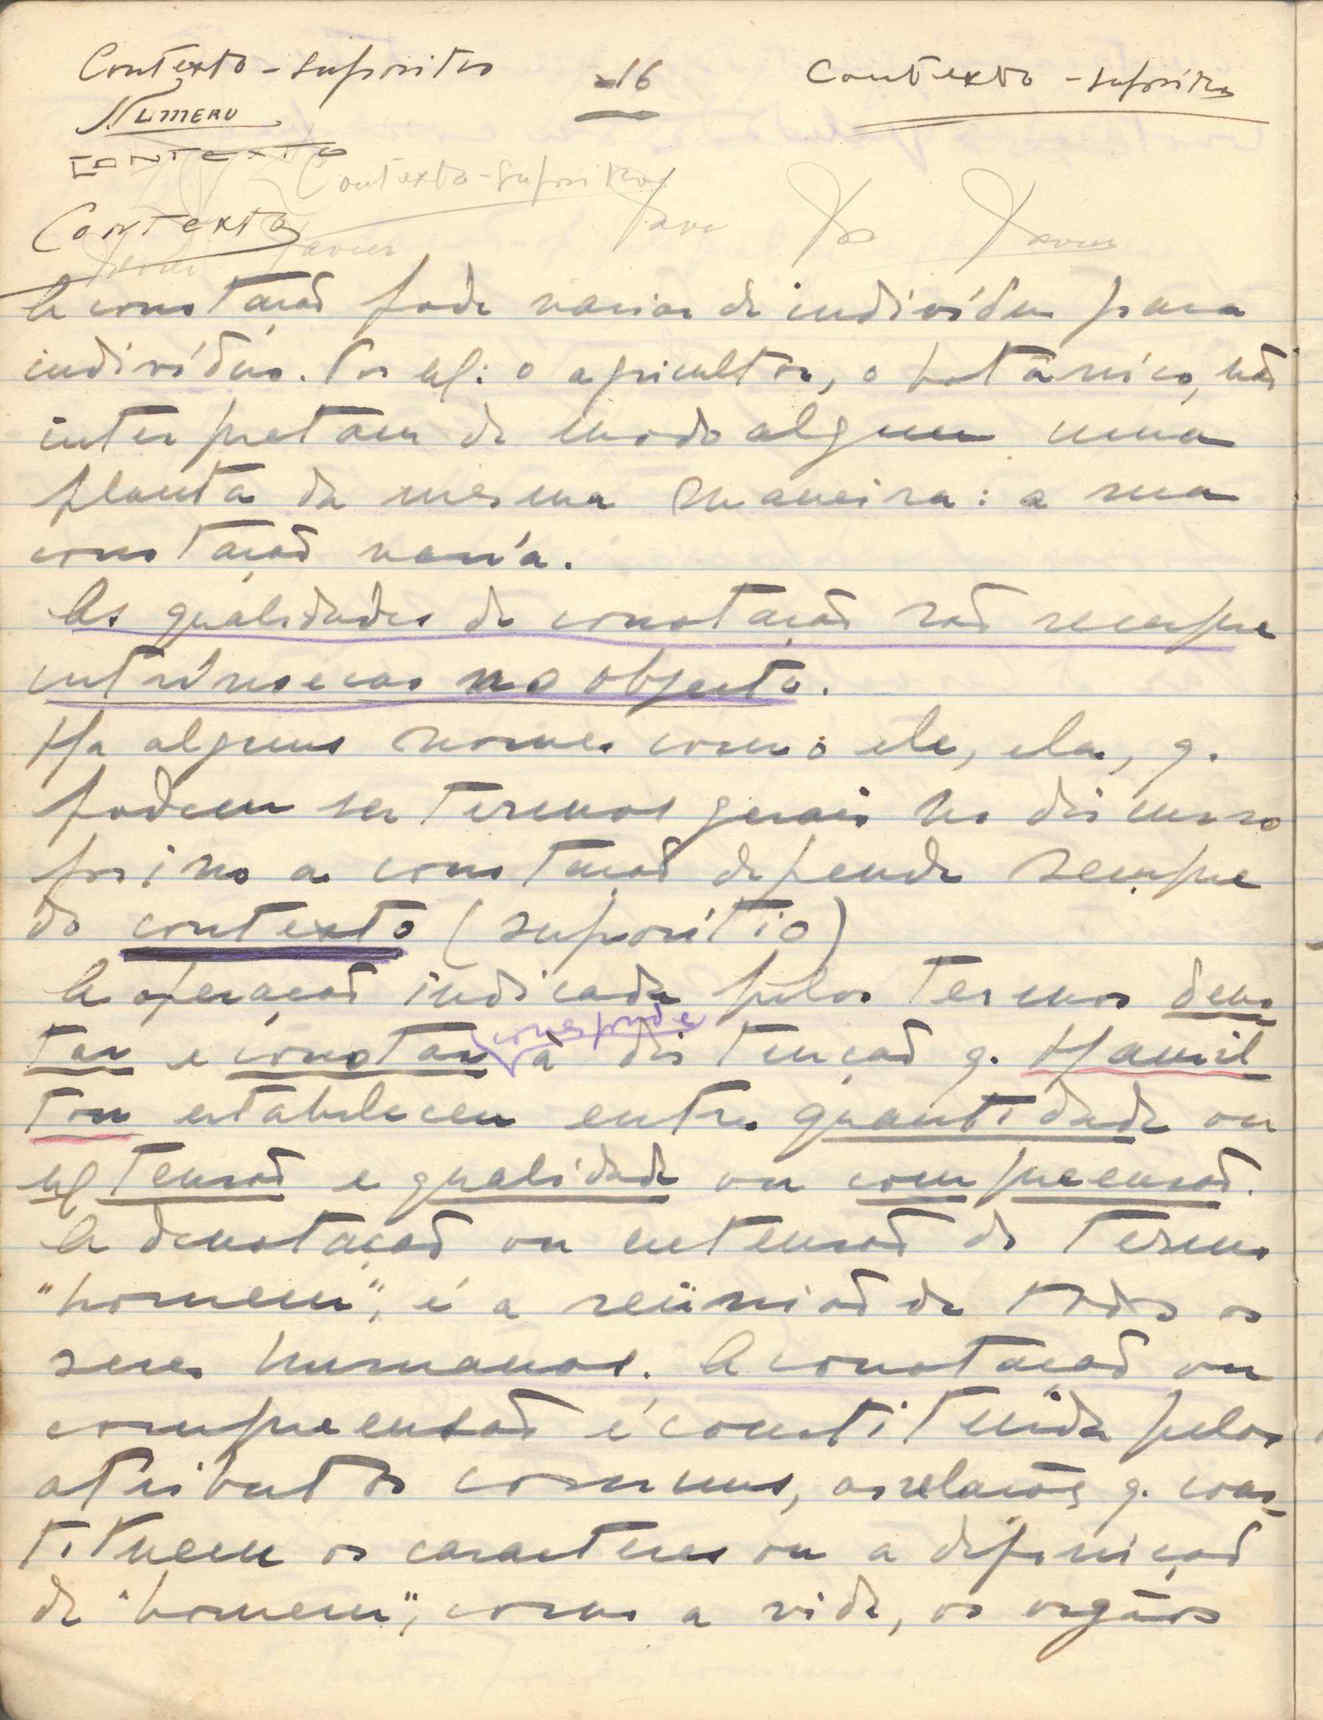 Contexto - supositio
16
Contexto - supositio
NUMERO
CONTEXTO
Contexto - supositio
Contexto
Xavier
Xavier
A conotação pode variar de indivíduo para
indivíduo. Por ex: o agricultor, o botânico, não
interpretam de modo algum uma
planta da mesma maneira: a sua
conotação varia.
As qualidades da conotação são sempre
intrínsecas no objecto.
Ha alguns nomes como: ele, ela, q.
podem ser termos gerais no discurso
por isso a conotação depende sempre
do contexto (supositio)
A operação indicada pelos termos deno
tar e conotar corresponde
à distinção q. Hamil
ton estabeleceu entre quantidade ou
extensão e qualidade ou compreensão.
A denotação ou extensão do termo
"homem", é a reünião de todos os
seres humanos. A conotação ou
compreensão é constituida pelos
atributos comuns, as relações q. cons-
tituem os caracteres ou a definição
de "homem", como a vida, os orgãos